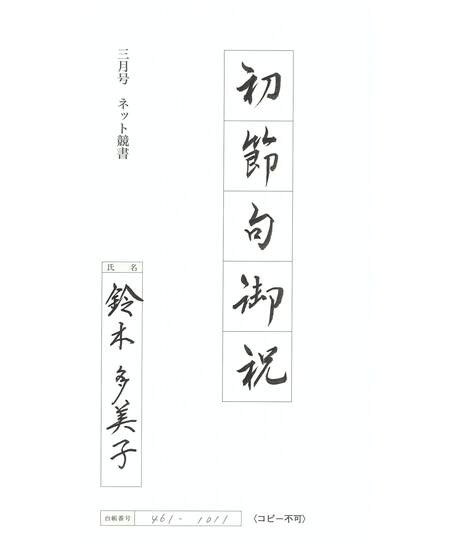 初節句御祝
三月号 ネット競書
氏名
鈴木多美子
台帳番号 461-1011 〈コピー不可〉